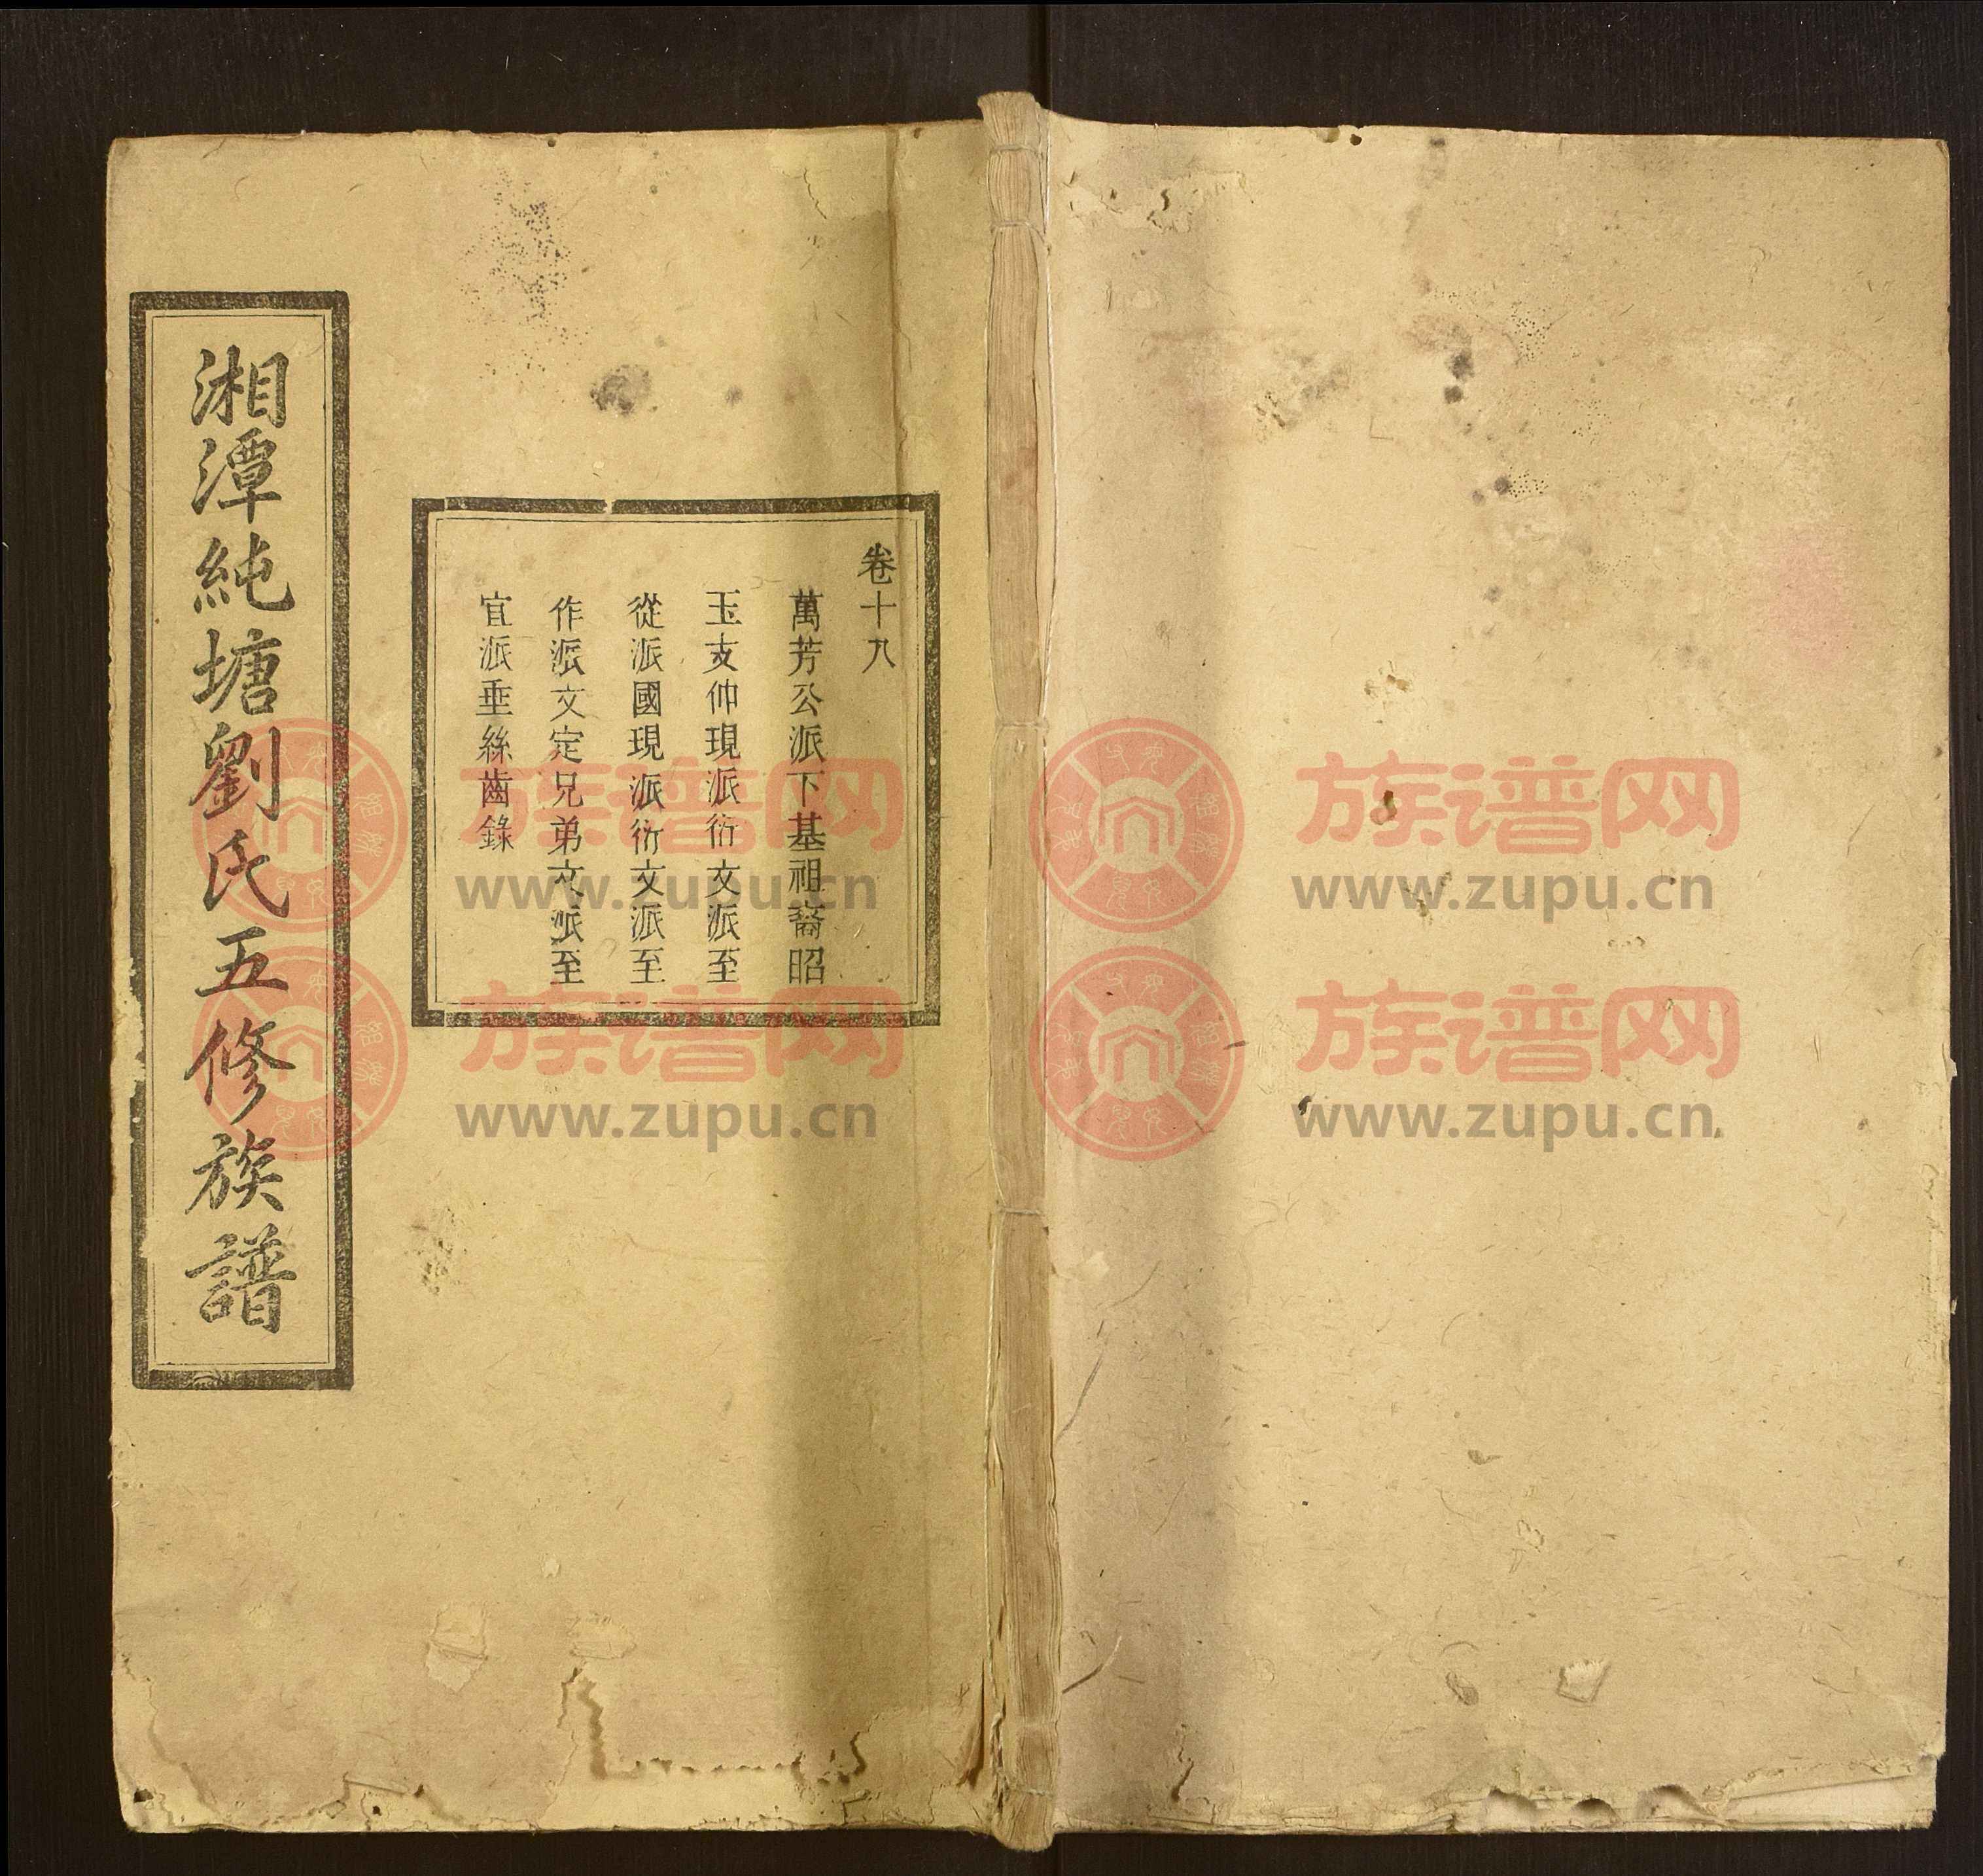 卷十八
萬芳公派下基祖裔昭
玉支仲現派衍文派至
從派國現派衍文派至
作派文定兄弟文派至
宜派垂絲齒錄
湘潭純塘劉氏五修族譜
族谱网
www.zupu.cn
族谱网
www.zupu.cn
族谱网
www.zupu.cn
族谱网
www.zupu.cn